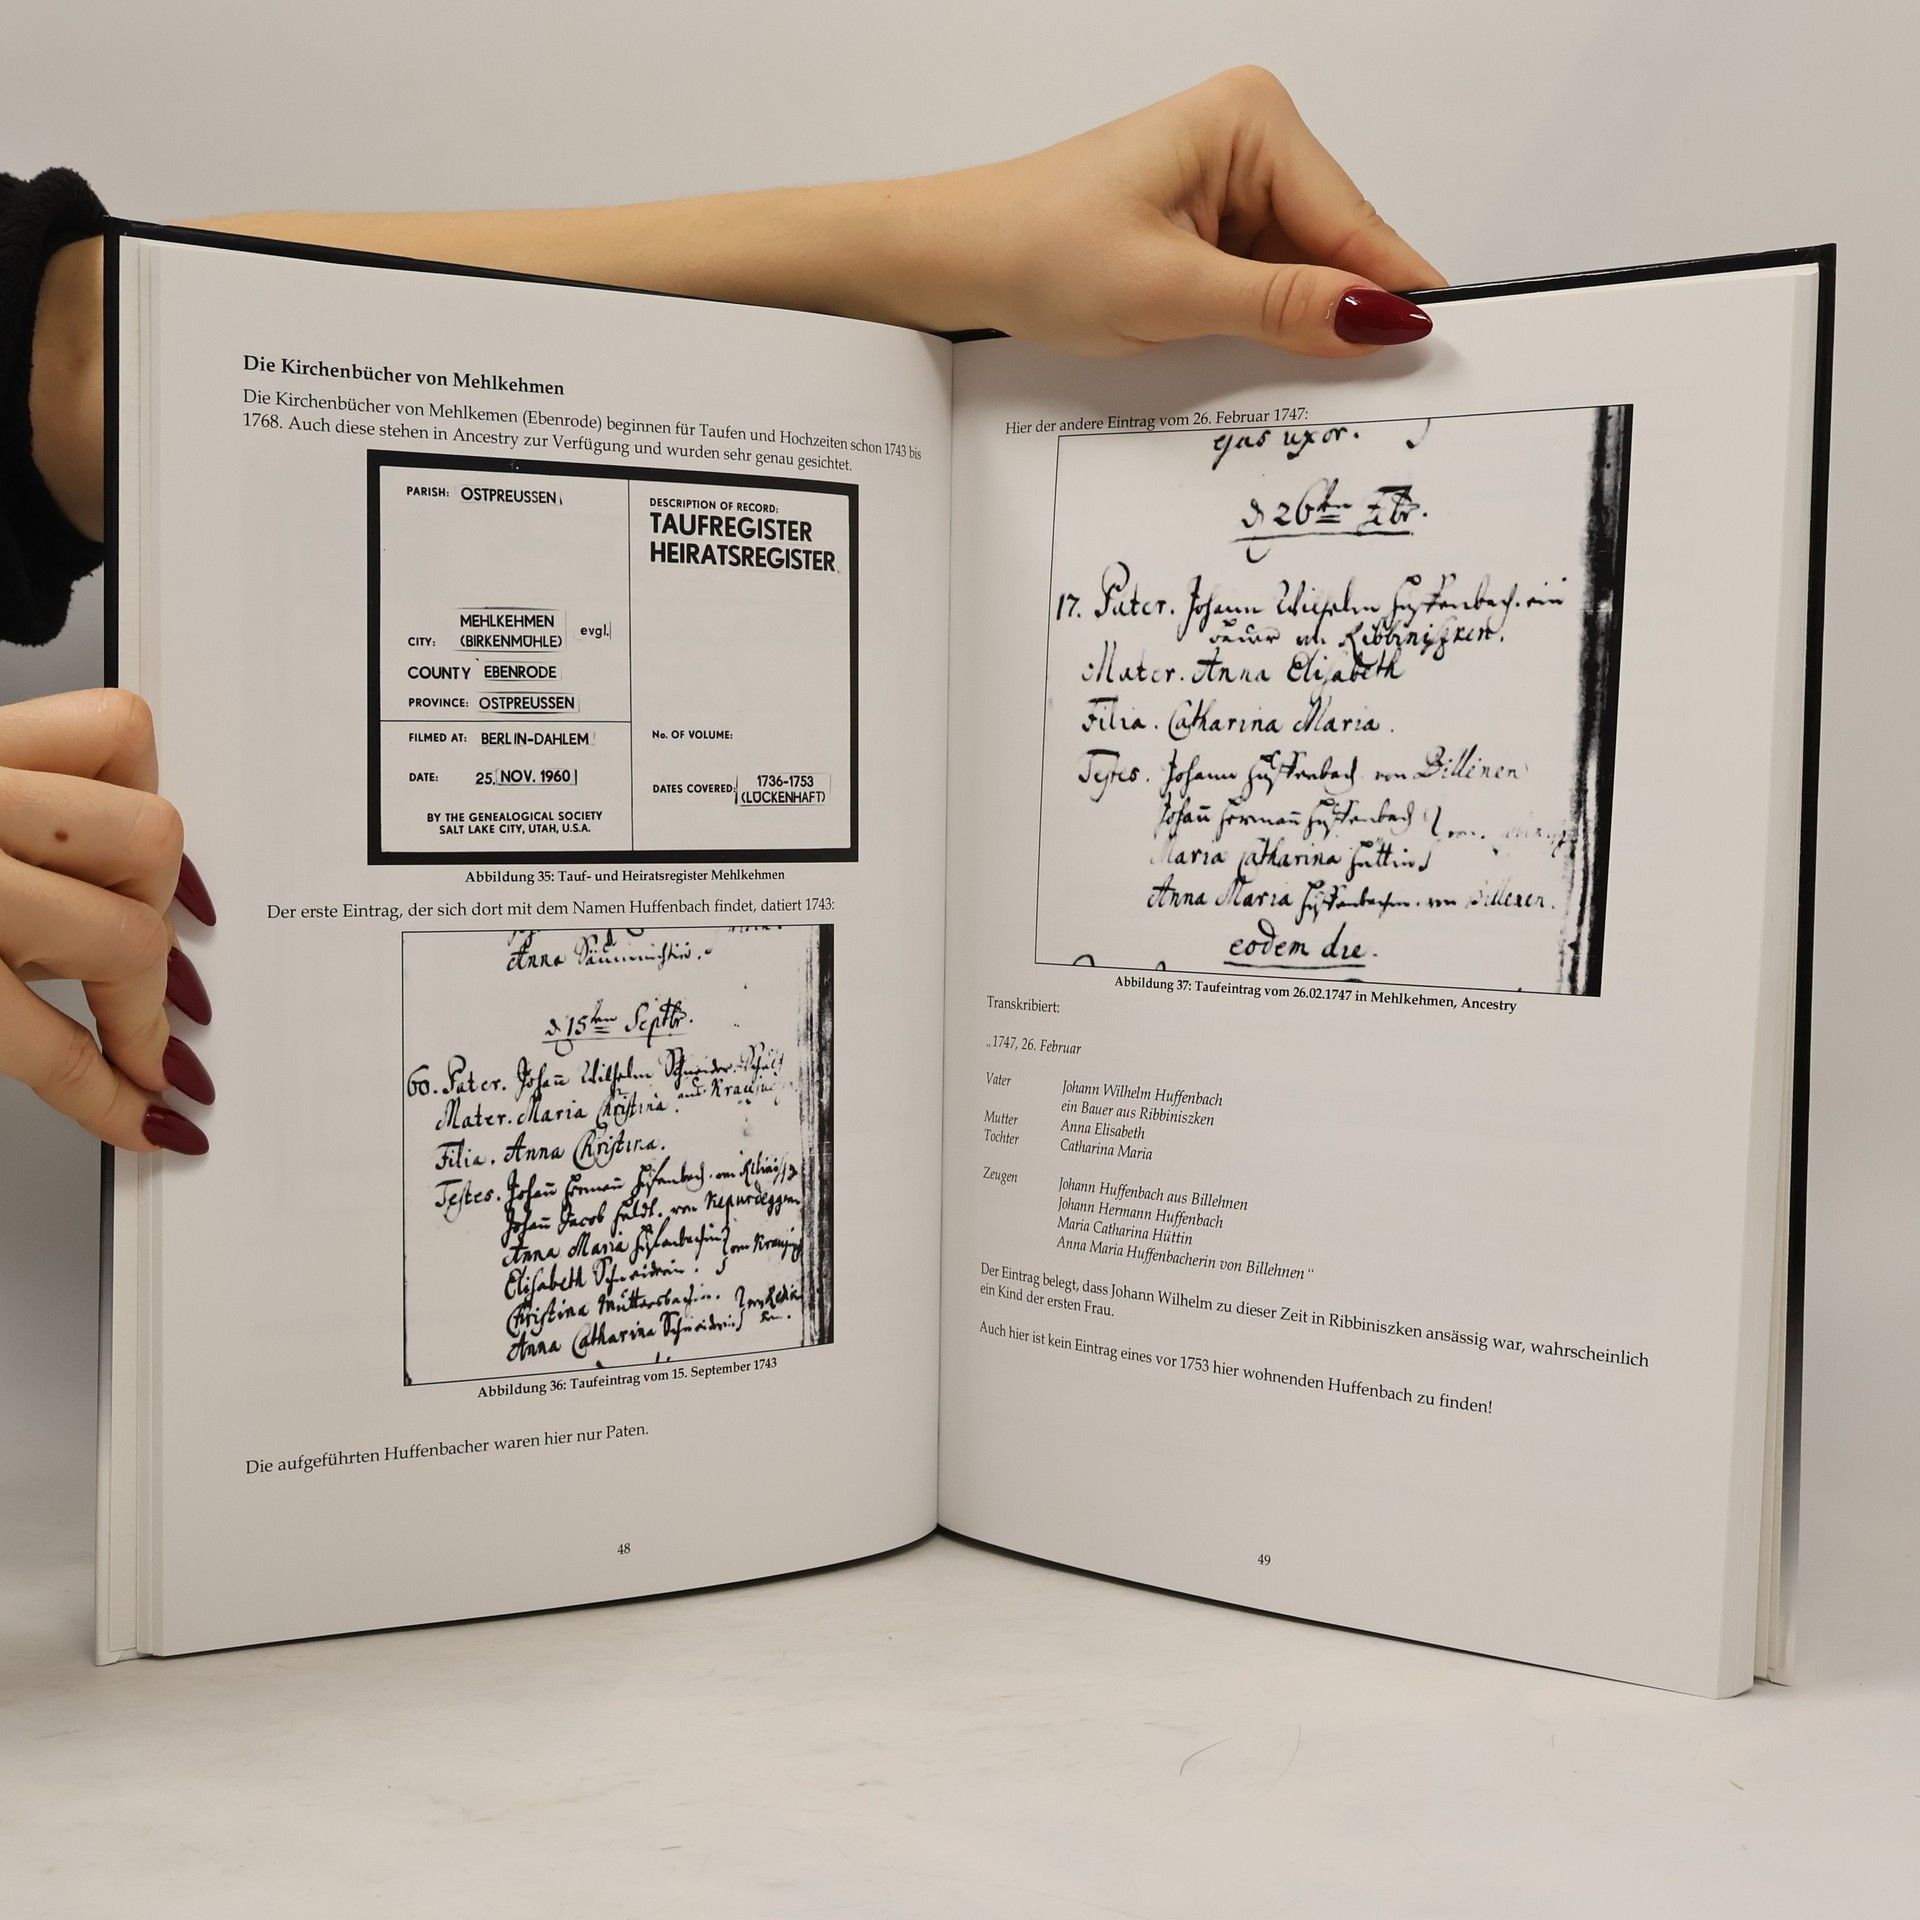 Die Kirchenbücher von Mehlkehmen
Die Kirchenbücher von Mehlkemen (Ebenrode) beginnen für Taufen und Hochzeiten schon 1743 bis
1768. Auch diese stehen in Ancestry zur Verfügung und wurden sehr genau gesichtet.
PARISH: OSTPREUSSEN
CITY: MEHLKEHMEN
(BIRKENMÜHLE) evgl.
COUNTY EBENRODE
PROVINCE: OSTPREUSSEN
FILMED AT: BERLIN-DAHLEM
DATE: 25. NOV. 1960
BY THE GENEALOGICAL SOCIETY
SALT LAKE CITY, UTAH, U.S.A.
DESCRIPTION OF RECORD:
TAUFREGISTER
HEIRATSREGISTER
No. OF VOLUME:
DATES COVERED: 1736-1753
(LÜCKENHAFT)
Abbildung 35: Tauf- und Heiratsregister Mehlkehmen
Der erste Eintrag, der sich dort mit dem Namen Huffenbach findet, datiert 1743:
Anna
d 15ten Septbr.
60. Pater. Johan̄ Wilhelm Schneider
Mater. Maria Christina
Filia. Anna Christina.
Testes. Johan̄ Herman̄ Huffenbach
Johan̄ Jacob von
Anna Maria Huffenbachin
Elisabeth Schneiderin
Christina
Anna Catharina Schneiderin
Abbildung 36: Taufeintrag vom 15. September 1743
Die aufgeführten Huffenbacher waren hier nur Paten.
48
Hier der andere Eintrag vom 26. Februar 1747:
ejus uxor.
d 26ten Febr.
17. Pater. Johann Wilhelm Huffenbach. ein
Bauer in Ribbiniszken.
Mater. Anna Elisabeth
Filia. Catharina Maria.
Testes. Johann Huffenbach von Billénen
Johan̄ Herman̄ Huffenbach
Maria Catharina Hüttin
Anna Maria Huffenbachin von Billenen.
eodem die.
Abbildung 37: Taufeintrag vom 26.02.1747 in Mehlkehmen, Ancestry
Transkribiert:
„1747, 26. Februar
Vater Johann Wilhelm Huffenbach
ein Bauer aus Ribbiniszken
Mutter Anna Elisabeth
Tochter Catharina Maria
Zeugen Johann Huffenbach aus Billehnen
Johann Hermann Huffenbach
Maria Catharina Hüttin
Anna Maria Huffenbacherin von Billehnen“
Der Eintrag belegt, dass Johann Wilhelm zu dieser Zeit in Ribbiniszken ansässig war, wahrscheinlich
ein Kind der ersten Frau.
Auch hier ist kein Eintrag eines vor 1753 hier wohnenden Huffenbach zu finden!
49